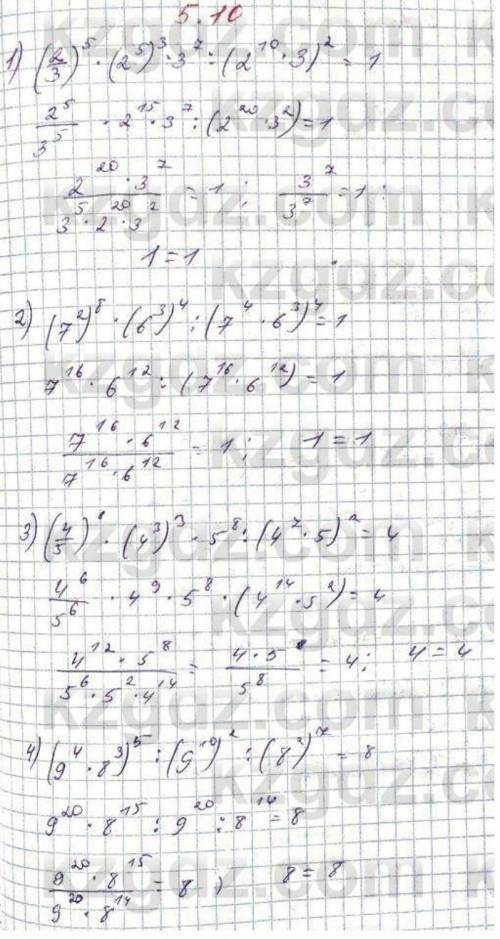 5.10
1) (2/3)^5 · (2^5)^3 · 3^7 : (2^10 · 3)^2 = 1
2^5/3^5 · 2^15 · 3^7 : (2^20 · 3^2) = 1
2^20 · 3^7 / 3^5 · 2^20 · 3^2 = 1 ; 3^7/3^7 = 1 :
1 = 1
2) (7^2)^8 · (6^3)^4 : (7^4 · 6^3)^4 = 1
7^16 · 6^12 : (7^16 · 6^12) = 1
7^16 · 6^12 / 7^16 · 6^12 = 1 ; 1 = 1
3) (4/5)^6 · (4^3)^3 · 5^8 : (4^7 · 5)^2 = 4
4^6/5^6 · 4^9 · 5^8 · (4^14 · 5^2) = 4
4^12 · 5^8 / 5^6 · 5^2 · 4^14 = 4 · 5^8 / 5^8 = 4 ; 4 = 4
4) (9^4 · 8^3)^5 : (9^10)^2 : (8^2)^7 = 8
9^20 · 8^15 : 9^20 : 8^14 = 8
9^20 · 8^15 / 9^20 · 8^14 = 8 ) 8 = 8
kzgdz.com